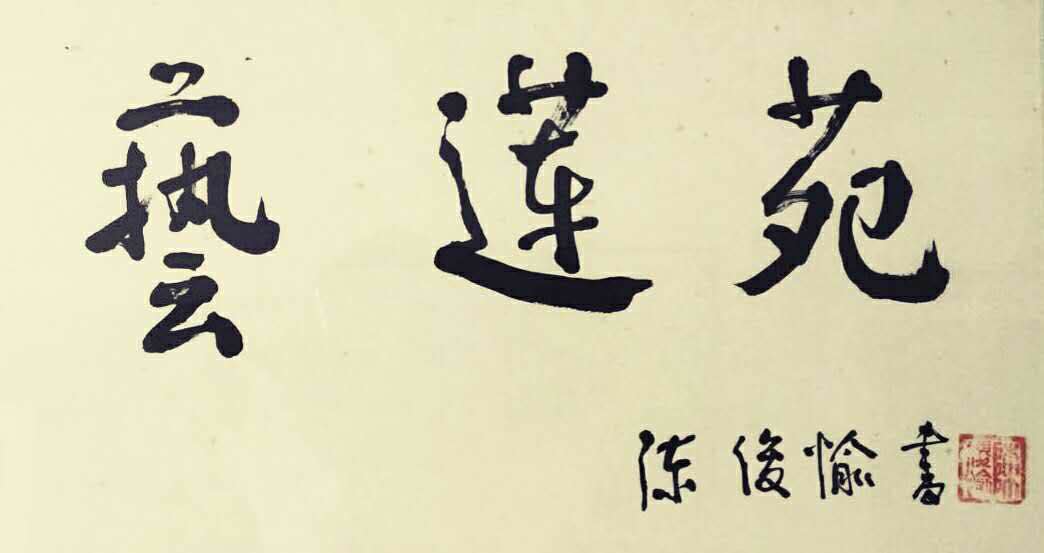 藝蓮苑
陈俊愉書